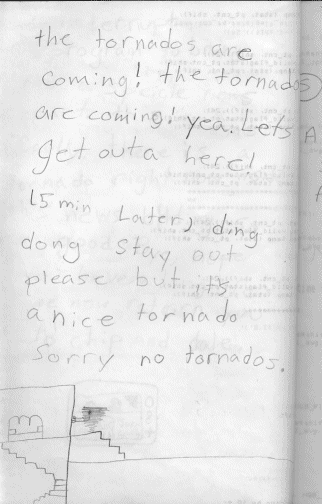 the tornados are
coming! the tornados
are coming! yea. Let's
get outa here!
15 min Later, ding
dong Stay oot
please but it's
a nice tornado
Sorry no tornados.